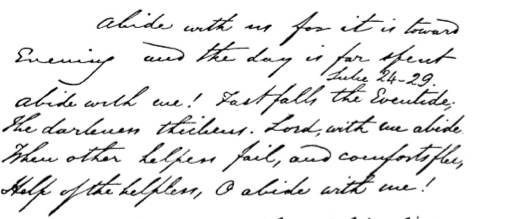 Abide with us for it is toward
Evening and the day is far spent
Luke 24-29.
Abide with me! Fast falls the Eventide;
The darkness thickens. Lord, with me abide
When other helpers fail, and comforts flee,
Help of the helpless, O abide with me!